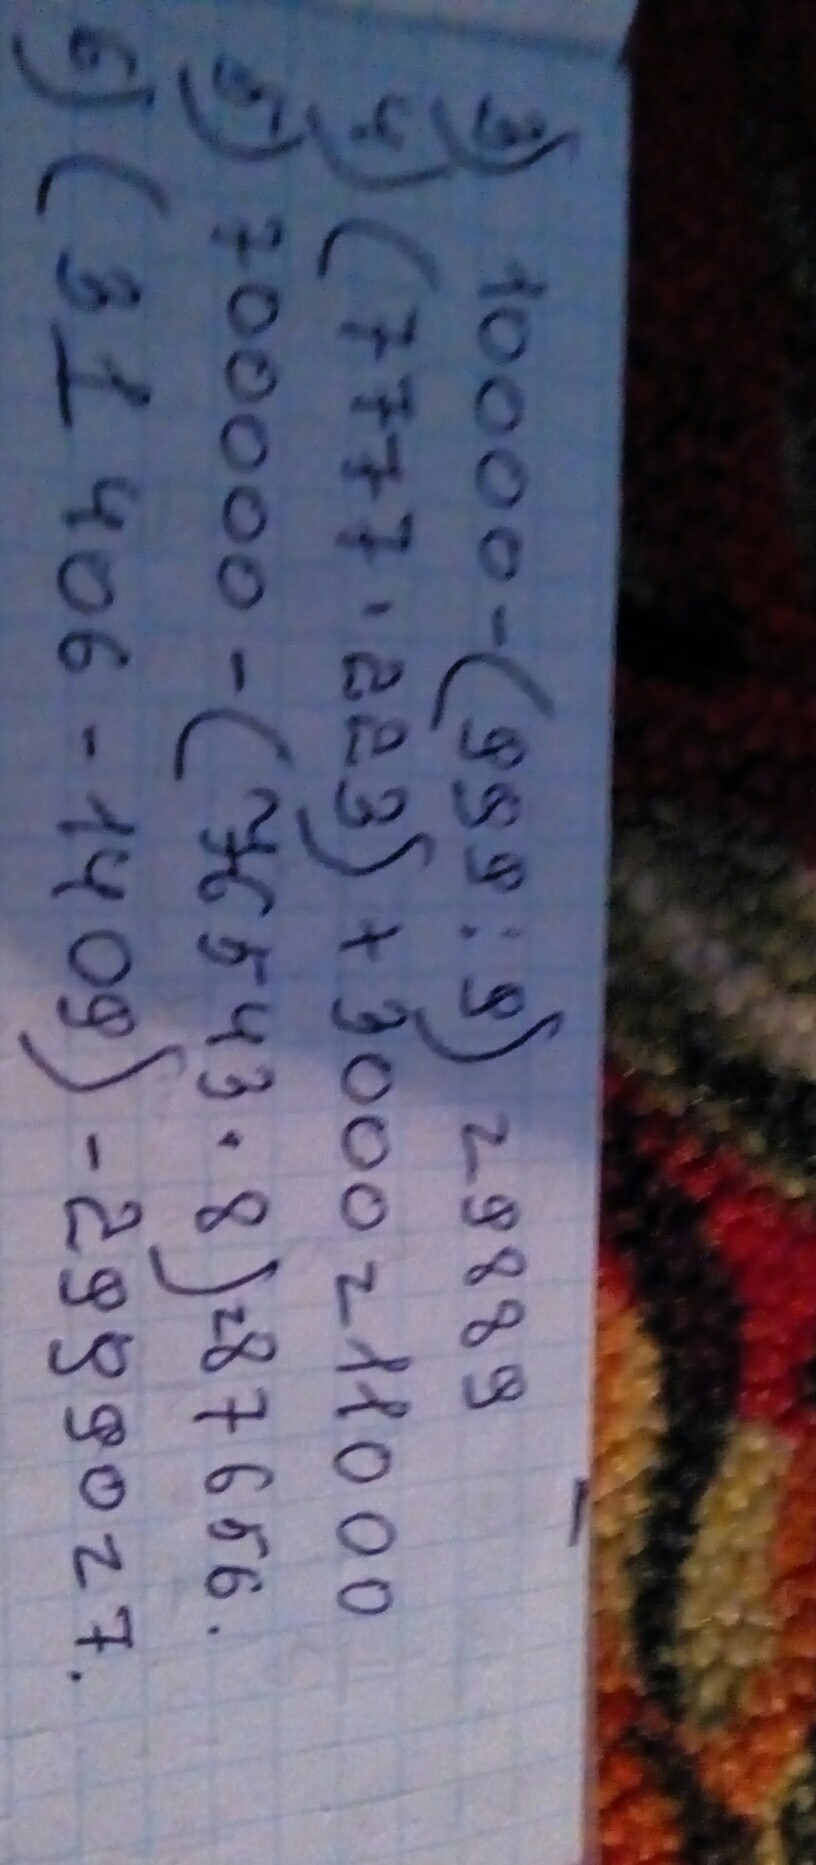 3) 10000-(999:9) = 9889
4) (7777·223)+3000 = 11000
5) 70000-(76543·8) = 87656.
6) (31406-1409)-29990 = 7.